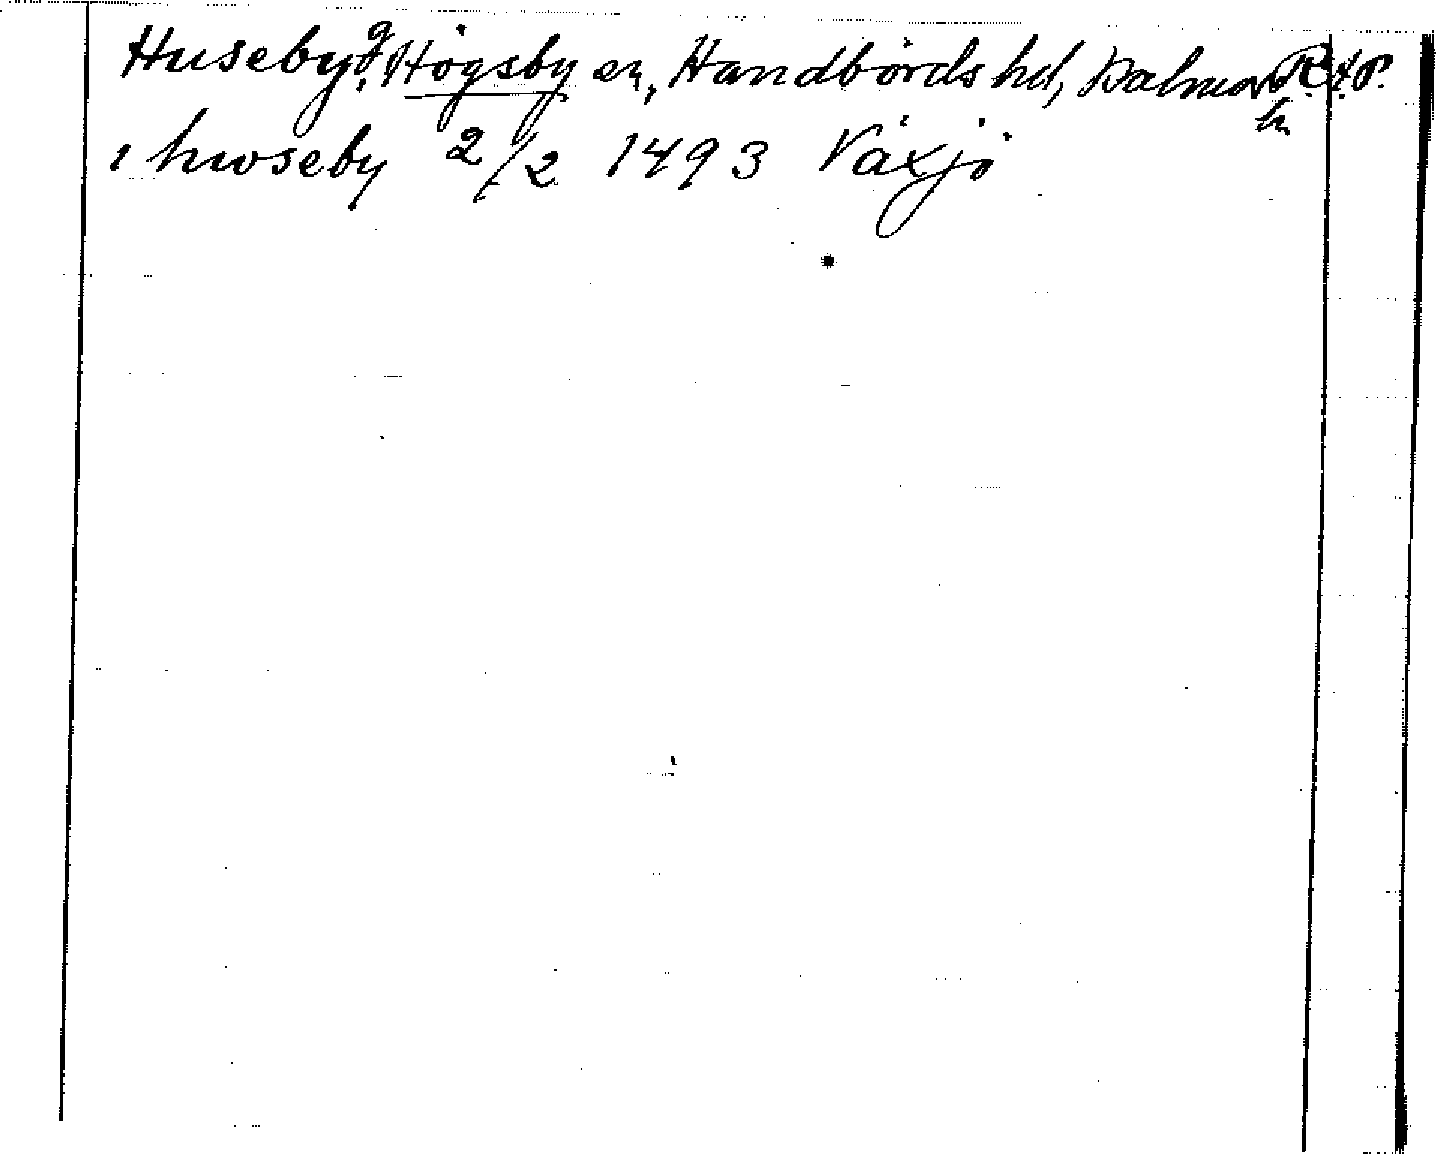 Huseby, g Högsby sn, Handbörds hd, Kalmar R.A.P.
ln
i hwseby 2/2 1493 Växjö